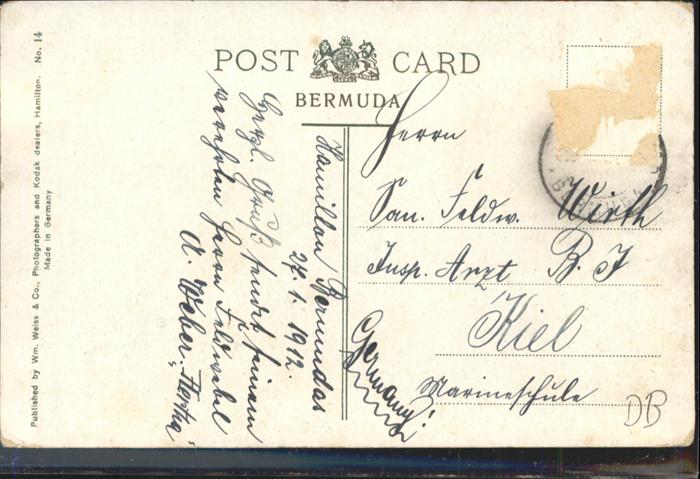 POST CARD
BERMUDA
Published by Wm. Weiss & Co., Photographers and Kodak dealers, Hamilton. No. 14
Made in Germany
Hamilton Bermudas
24.1.1912.
Herzl. Gruß sendet seinem
verehrten Herrn Feldwebel
A. Weber.
Herrn
San. Feldw. Wirth
Insp. Arzt B. I
Kiel
Marineschule
Germany!
DB